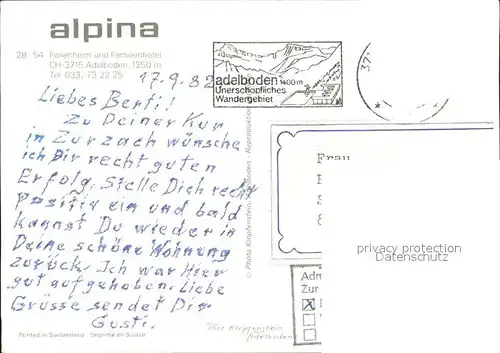 alpina
28-54 Ferienheim und Familienhotel
CH-3715 Adelboden, 1350 m
Tel 033/73 22 25
17.9.82
adelboden 1400m
Unerschöpfliches
Wandergebiet
Liebes Berti!
Zu Deiner Kur
in Zurzach wünsche
ich Dir recht guten
Erfolg, Stelle Dich recht
positiv ein und bald
kannst Du wieder in
Deine schöne Wohnung
zurück. Ich war Hier
gut aufgehoben. Liebe
Grüsse sendet Dir
Gusti.
© Photo Klopfenstein, Adelboden - Reproduktion
Frau
privacy protection
Datenschutz
Adr
Zur
X
Printed in Switzerland Imprimé en Suisse
Klopfenstein
Adelboden